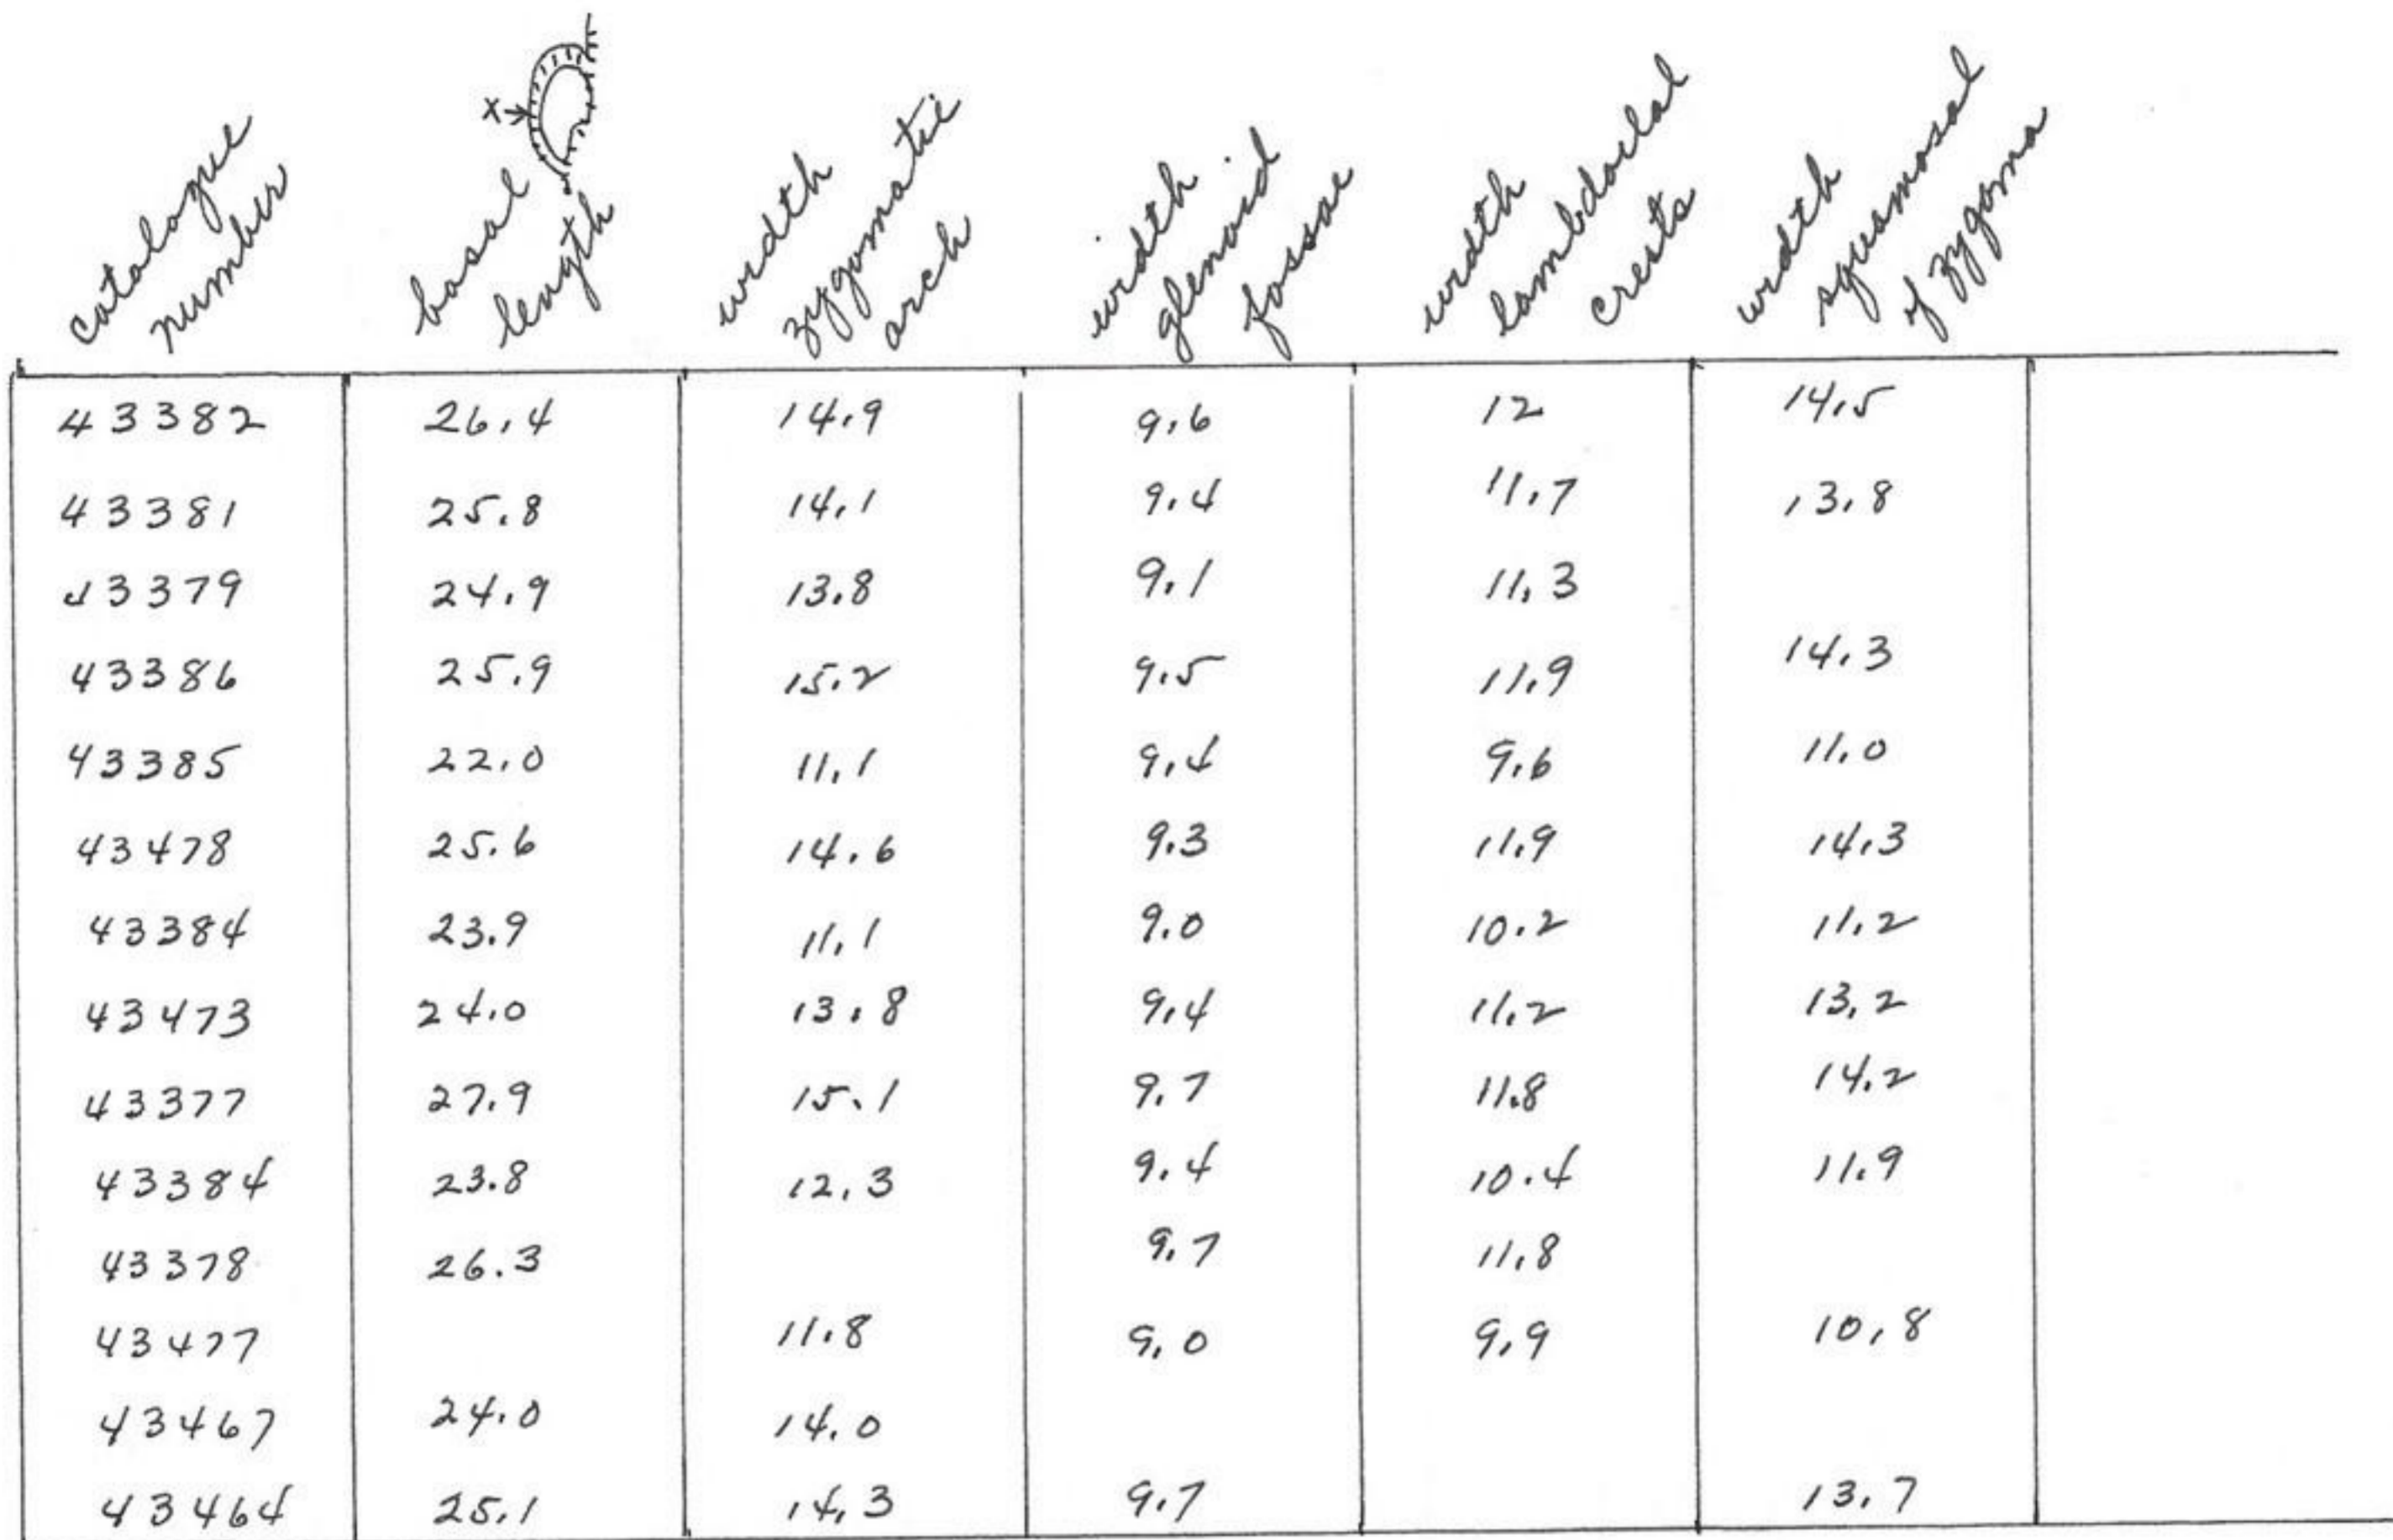 catalogue number
basal length
x
width zygomatic arch
width glenoid fossae
width lambdoidal crests
width squamosal of zygoma
43382 26.4 14.9 9.6 12 14.5
43381 25.8 14.1 9.4 11.7 13.8
43379 24.9 13.8 9.1 11.3
43386 25.9 15.2 9.5 11.9 14.3
43385 22.0 11.1 9.4 9.6 11.0
43478 25.6 14.6 9.3 11.9 14.3
43384 23.9 11.1 9.0 10.2 11.2
43473 24.0 13.8 9.4 11.2 13.2
43377 27.9 15.1 9.7 11.8 14.2
43384 23.8 12.3 9.4 10.4 11.9
43378 26.3 9.7 11.8
43477 11.8 9.0 9.9 10.8
43467 24.0 14.0
43464 25.1 14.3 9.7 13.7